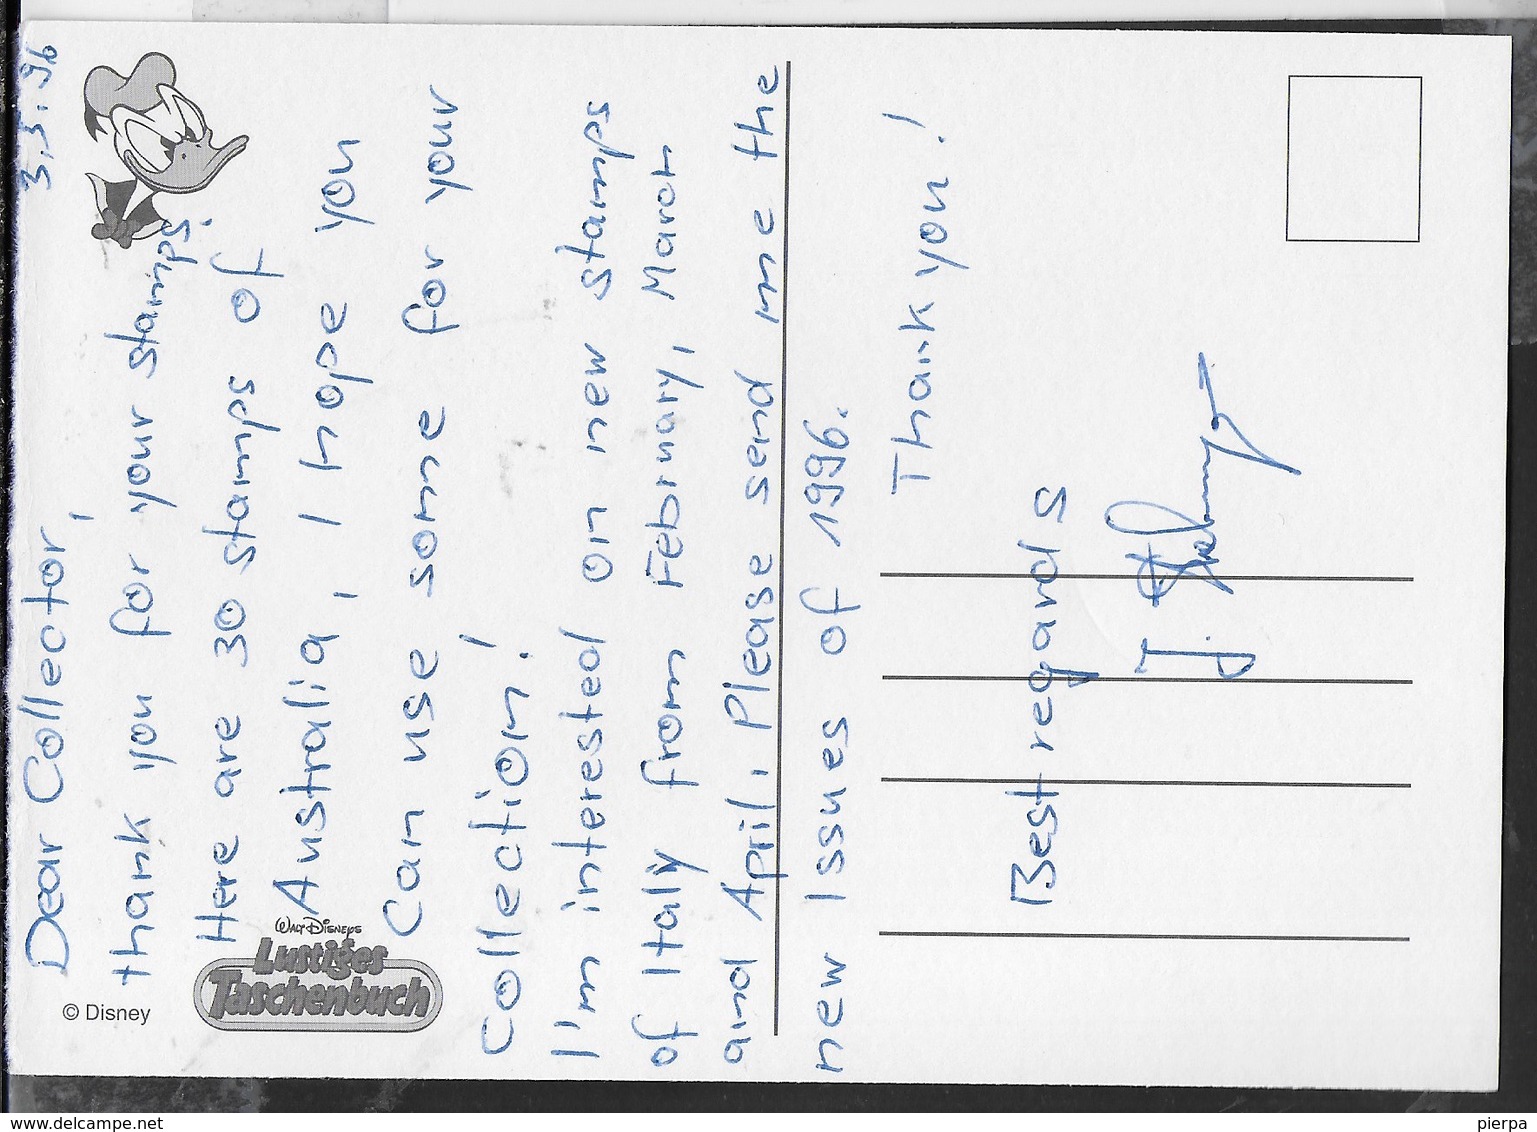 3.5.96
Dear Collector,
thank you for your stamps!
Here are 30 stamps of
Australia, I hope you
can use some for your
collection!
I'm interested on new stamps
of Italy from February, March
and April. Please send me the
new Issues of 1996.
Thank you!
Best regards
© Disney
WALT DISNEYS
Lustiges
Taschenbuch
www.delcampe.net
pierpa